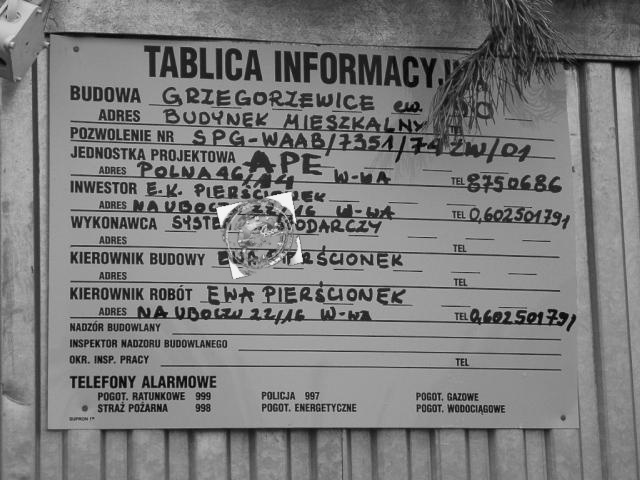 TABLICA INFORMACYJNA
BUDOWA GRZEGORZEWICE ew.
ADRES BUDYNEK MIESZKALNY
POZWOLENIE NR SPG-WAAB/7351/74 ZW/01
JEDNOSTKA PROJEKTOWA APE
ADRES POLNA 46/44 W-WA TEL 8750686
INWESTOR E.K. PIERŚCIONEK
ADRES NA UBOCZU 22/16 W-WA TEL 0,602501791
WYKONAWCA
ADRES TEL
KIEROWNIK BUDOWY EWA PIERŚCIONEK
ADRES TEL
KIEROWNIK ROBÓT EWA PIERŚCIONEK
ADRES NA UBOCZU 22/16 W-WA TEL 0,602501791
NADZÓR BUDOWLANY
INSPEKTOR NADZORU BUDOWLANEGO
OKR. INSP. PRACY TEL
TELEFONY ALARMOWE
POGOT. RATUNKOWE 999 POLICJA 997 POGOT. GAZOWE
STRAŻ POŻARNA 998 POGOT. ENERGETYCZNE POGOT. WODOCIĄGOWE